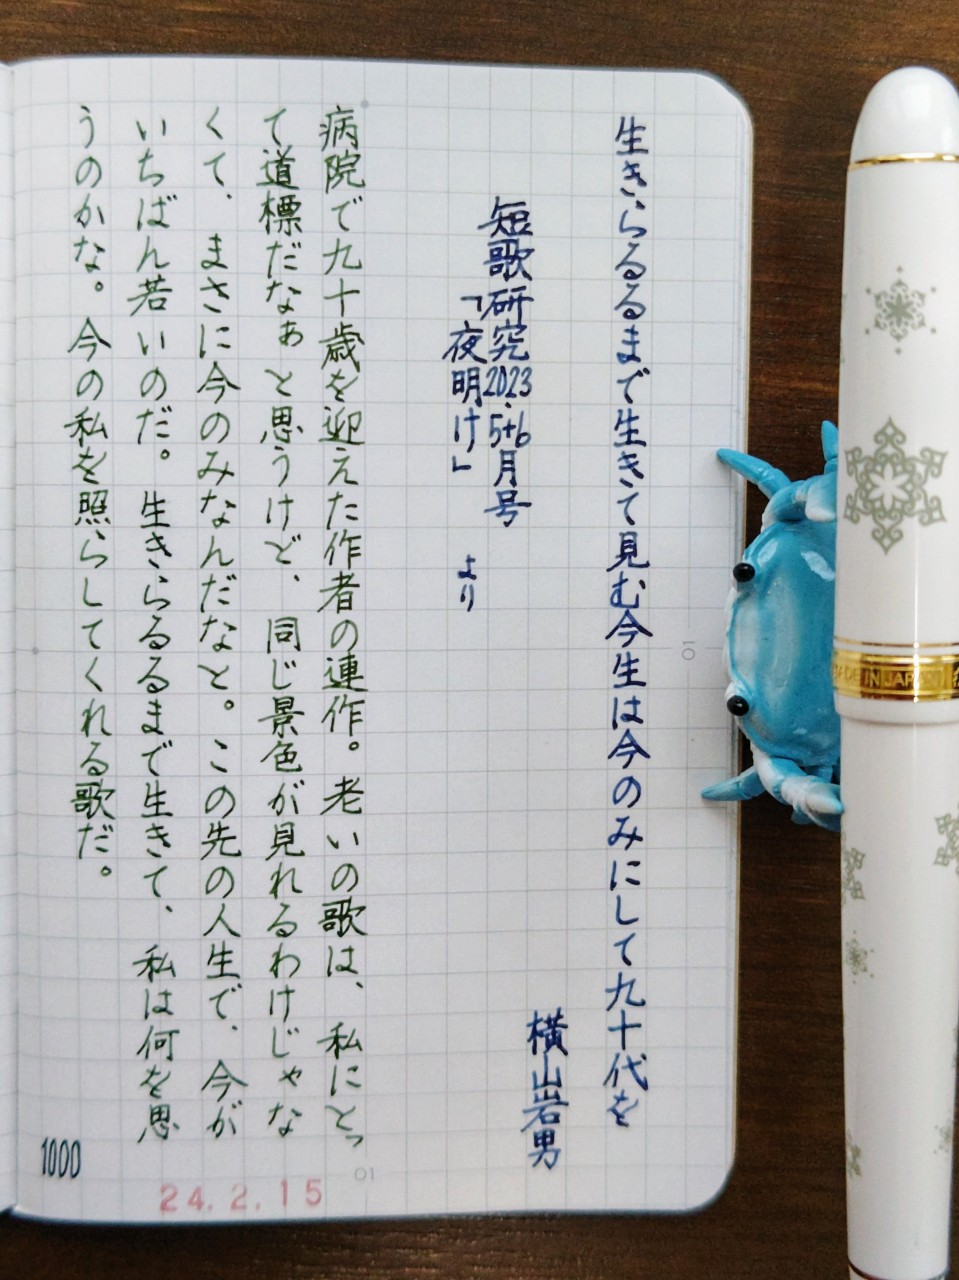 生きらるるまで生きて見む今生は今のみにして九十代を
横山岩男
短歌研究2023.5+6月号
「夜明け」 より
病院で九十歳を迎えた作者の連作。老いの歌は、私にとっ
て道標だなぁと思うけど、同じ景色が見れるわけじゃな
くて、まさに今のみなんだなと。この先の人生で、今が
いちばん若いのだ。生きらるるまで生きて、私は何を思
うのかな。今の私を照らしてくれる歌だ。
1000
24.2.15
10
10
MADE IN JAPAN